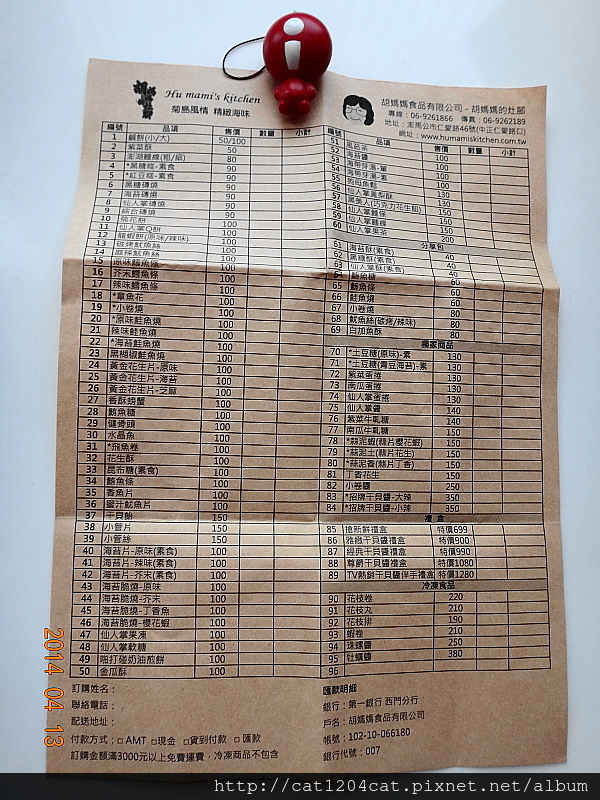 Hu mami's kitchen
菊島風情 精緻海味
胡媽媽食品有限公司 - 胡媽媽的灶腳
專線：06-9261866 傳真：06-9262189
地址：澎湖馬公市仁愛路46號(中正仁愛路口)
網址：www.humamiskitchen.com.tw
編號 品項 售價 數量 小計
1 鹹餅(小/大) 50/100
2 紫菜酥 50
3 澎湖麵線(粗/細) 80
4 *黑糖糕-素食 90
5 *紅豆糕-素食 90
6 黑糖磚燒 90
7 海苔磚燒 90
8 仙人掌磚燒 90
9 綜合磚燒 90
10 菊花餅 100
11 仙人掌Q餅 100
12 龍蝦餅(原味/辣味) 100
13 碳烤魷魚絲 100
14 麻辣魷魚絲 100
15 原味鱈魚條 100
16 芥末鱈魚條 100
17 辣味鱈魚條 100
18 *章魚花 100
19 *小卷燒 100
20 *原味鮭魚燒 100
21 辣味鮭魚燒 100
22 *海苔鮭魚燒 100
23 黑胡椒鮭魚燒 100
24 黃金花生片-原味 100
25 黃金花生片-海苔 100
26 黃金花生片-芝麻 100
27 香酥螃蟹 100
28 魷魚糖 100
29 健骨頭 100
30 水晶魚 100
31 *飛魚卷 100
32 花生酥 100
33 昆布糖(素食) 100
34 魷魚條 100
35 香魚片 100
36 蜜汁魷魚片 100
37 干貝飴 150
38 小管片 150
39 小管絲 150
40 海苔片-原味(素食) 100
41 海苔片-辣味(素食) 100
42 海苔片-芥末(素食) 100
43 海苔脆燒-原味 100
44 海苔脆燒-芥末 100
45 海苔脆燒-丁香魚 100
46 海苔脆燒-櫻花蝦 100
47 仙人掌果凍 100
48 仙人掌軟糖 100
49 啪打碰奶油煎餅 100
50 金瓜酥 100
編號 品項 售價 數量 小計
51 風茹茶 100
52 海苔醬 100
53 海帶芽湯-葷 100
54 海帶芽湯-素 100
55 狗母魚鬆 100
56 仙人掌鳳梨酥 130
57 黑美人(巧克力花生餡) 130
58 仙人掌麵條 150
59 仙人掌麵線 150
60 仙人掌果茶 200
分享包
61 海苔酥(素食) 40
62 黑糖酥(素食) 40
63 仙人掌酥(素食) 40
65 魷魚條 60
66 鮭魚燒 60
67 小卷燒 80
68 魷魚絲(碳烤/辣味) 80
69 白加魚酥 80
獨家商品
70 *土豆糖(原味)-素 130
71 *土豆糖(青豆海苔)-素 130
72 紫菜蛋捲 130
73 南瓜蛋捲 130
74 仙人掌蛋捲 130
75 仙人掌醬 140
76 紫菜牛軋糖 140
77 南瓜牛軋糖 140
78 *蒜泥蝦(蒜片櫻花蝦) 150
79 *蒜泥土(蒜片花生) 150
80 *蒜泥香(蒜片丁香) 150
81 丁香花生 150
82 小卷醬 250
83 *招牌干貝醬-大辣 350
84 *招牌干貝醬-小辣 350
禮盒
85 搶新鮮禮盒 特價699
86 雅緻干貝醬禮盒 特價900
87 經典干貝醬禮盒 特價990
88 尊爵干貝醬禮盒 特價1080
89 TV熱銷干貝醬伴手禮盒 特價1280
冷凍食品
90 花枝卷 220
91 花枝丸 210
92 花枝排 190
93 蝦卷 210
94 珠螺醬 250
95 牡蠣醬 380
96
訂購姓名：
聯絡電話：
配送地址：
付款方式：□AMT □現金 □貨到付款 □匯款
訂購金額滿3000元以上免費運費，冷凍商品不包含
匯款明細
銀行：第一銀行 西門分行
戶名：胡媽媽食品有限公司
帳號：102-10-066180
銀行代號：007
2014 04 13
http://cat1204cat.pixnet.net/album